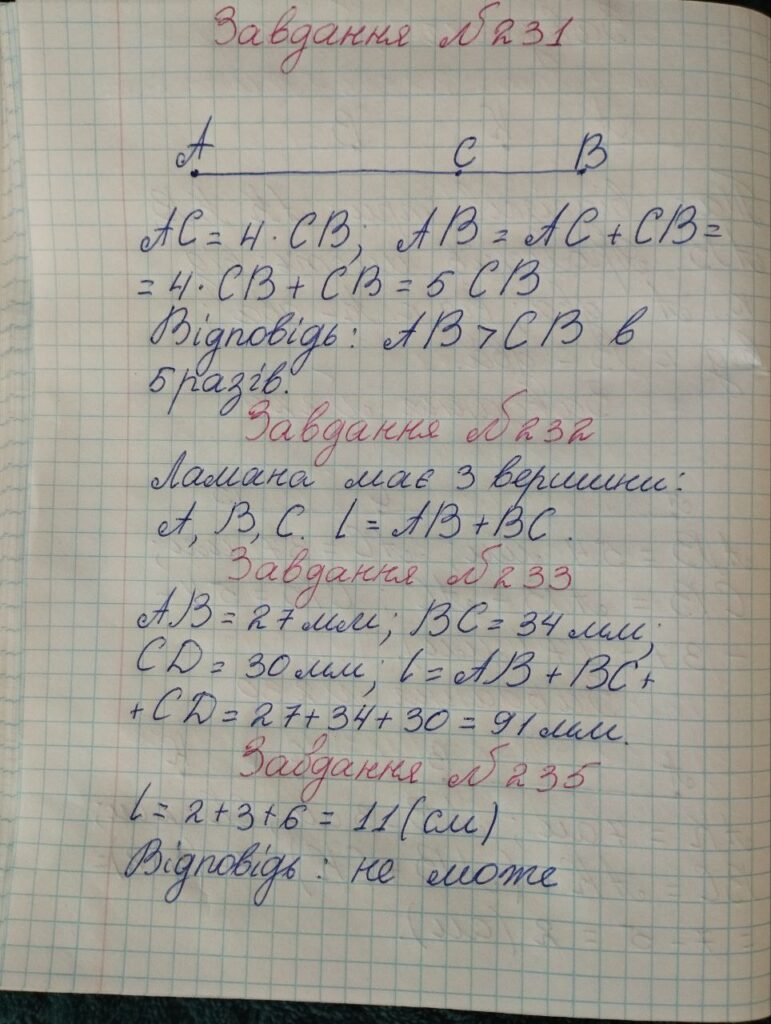 Завдання №231
A C B
AC = 4 · CB; AB = AC + CB =
= 4 · CB + CB = 5 CB
Відповідь: AB > CB в
5 разів.
Завдання №232
Ламана має 3 вершини:
A, B, C. l = AB + BC.
Завдання №233
AB = 27 мм; BC = 34 мм;
CD = 30 мм; l = AB + BC +
+ CD = 27 + 34 + 30 = 91 мм.
Завдання №235
l = 2 + 3 + 6 = 11 (см)
Відповідь: не може